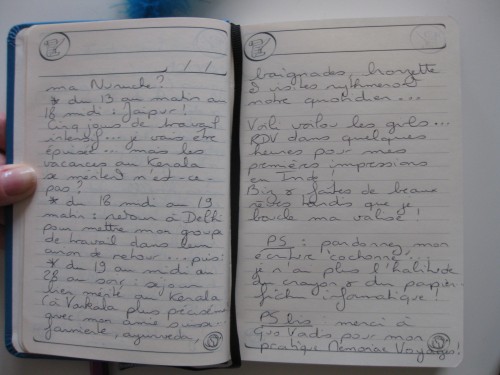 ma Nunuche?
* du 13 au matin au
18 midi : Jaipur!
Cinq jours de travail
intensif... je vais être
épuisée... mais les
vacances au Kerala
se méritent n'est-ce
pas?
* du 18 midi au 19
matin : retour à Delhi
pour mettre mon groupe
de travail dans leur
avion de retour... puis:
* du 19 au midi au
28 au soir : séjour
bien mérité au Kerala
(à Varkala plus précisément
avec mon amie suissa
farniente, ayurveda,
baignades, bronzette
& visites rythmeront
notre quotidien...
Voili voilou les gals...
RDV dans quelques
heures pour mes
premières impressions
en Inde!
Bizz & faites de beaux
rêves tandis que je
boucle ma valise!
PS : pardonnez mon
écriture "cochonne"...
je n'ai plus l'habitude
du crayon & du papier-
fichu informatique!
PS bis merci à
Quo Vadis pour mon
pratique Memoriae Voyages!